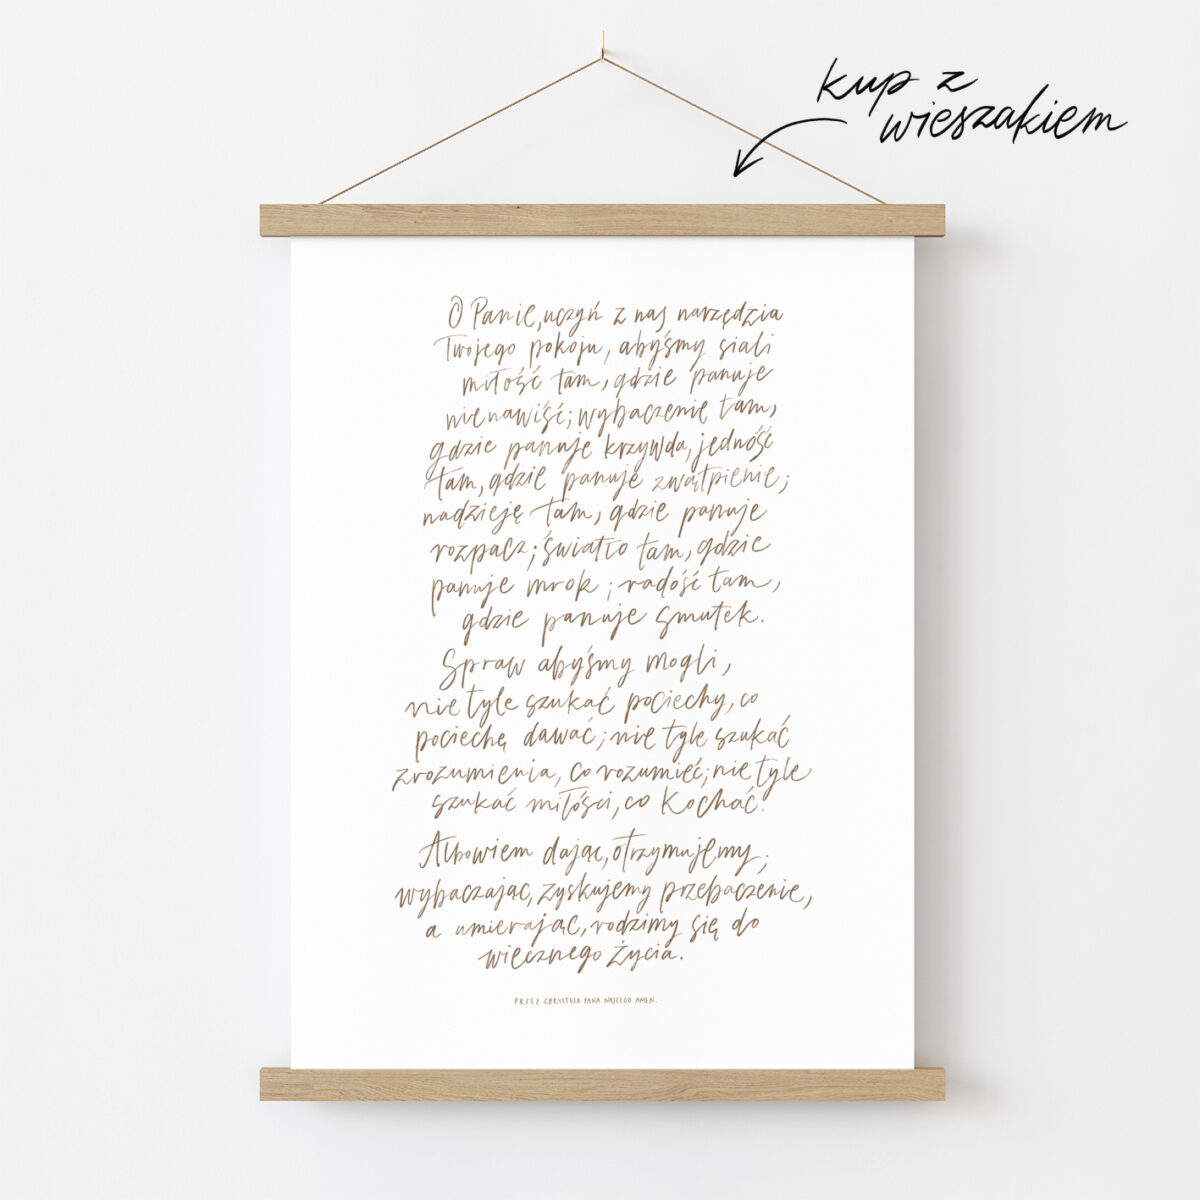 kup z
wieszakiem
O Panie, uczyń z nas narzędzia
Twojego pokoju, abyśmy siali
miłość tam, gdzie panuje
nienawiść; wybaczenie tam,
gdzie panuje krzywda, jedność
tam, gdzie panuje zwątpienie;
nadzieję tam, gdzie panuje
rozpacz; światło tam, gdzie
panuje mrok; radość tam,
gdzie panuje smutek.
Spraw abyśmy mogli,
nie tyle szukać pociechy, co
pociechę dawać; nie tyle szukać
zrozumienia, co rozumieć; nie tyle
szukać miłości, co kochać.
Albowiem dając, otrzymujemy;
wybaczając, zyskujemy przebaczenie,
a umierając, rodzimy się do
wiecznego życia.
PRZEZ CHRYSTUSA PANA NASZEGO AMEN.